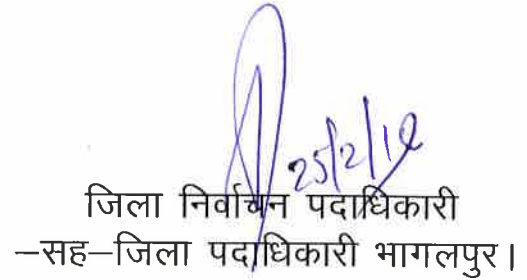 25/2/19
जिला निर्वाचन पदाधिकारी
–सह–जिला पदाधिकारी भागलपुर।